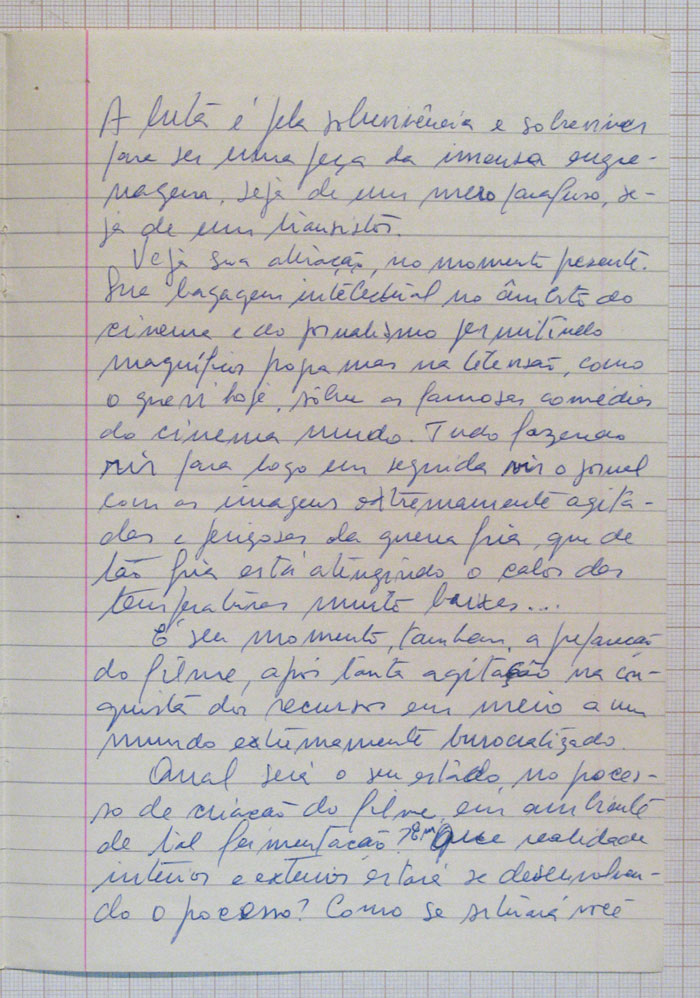 A luta é pela sobrevivência e sobreviver
para ser uma peça da imensa engre-
nagem, seja de um mero parafuso, se-
ja de um transistor.
Veja sua situação, no momento presente.
Sua bagagem intelectual no âmbito do
cinema e do jornalismo permitindo
magníficos programas na televisão, como
o que vi hoje, sôbre as famosas comédias
do cinema mudo. Tudo fazendo
rir para logo em seguida vir o jornal
com as imagens extremamente agita-
das e perigosas da guerra fria, que de
tão fria está atingindo o calor das
temperaturas muito baixas...
É seu momento, também, a preparação
do filme, após tanta agitação na con-
quista dos recursos em meio a um
mundo extremamente burocratizado.
Qual será o seu estado no proces-
so de criação do filme, em ambiente
de tal fermentação? Em que realidade
interior e exterior estará se desenvolven-
do o processo? Como se situará você